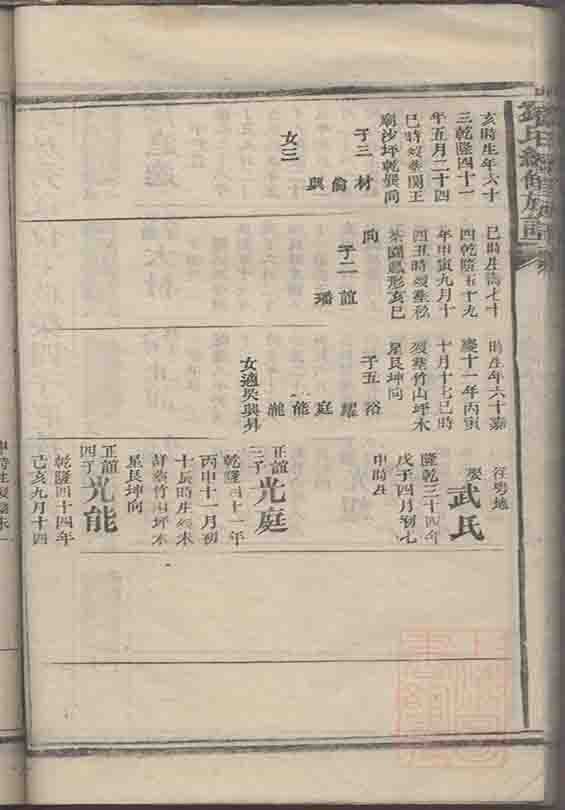 亥時生年六十
三乾隆四十一
年五月二十四
巳時歿塟関王
廟沙坪乾巽向
子三 材
倫
與
女三
巳時生壽七十
四乾隆五十九
年甲寅九月十
四丑時歿塟秘
茶園鳳形亥巳
向
子二 誼
璠
時生年六十嘉
慶十一年丙寅
十月十七巳時
歿塟竹山坪木
星艮坤向
子五 裕
耀
庭
能
瀧
女適吳興昇
往男地
娶 武氏
隆乾三十四年
戊子四月初七
申時生
正誼三子 光庭
乾隆四十一年
丙申十一月初
十辰時生歿未
詳塟竹山坪木
星艮坤向
正誼四子 光能
乾隆四十四年
己亥九月十四